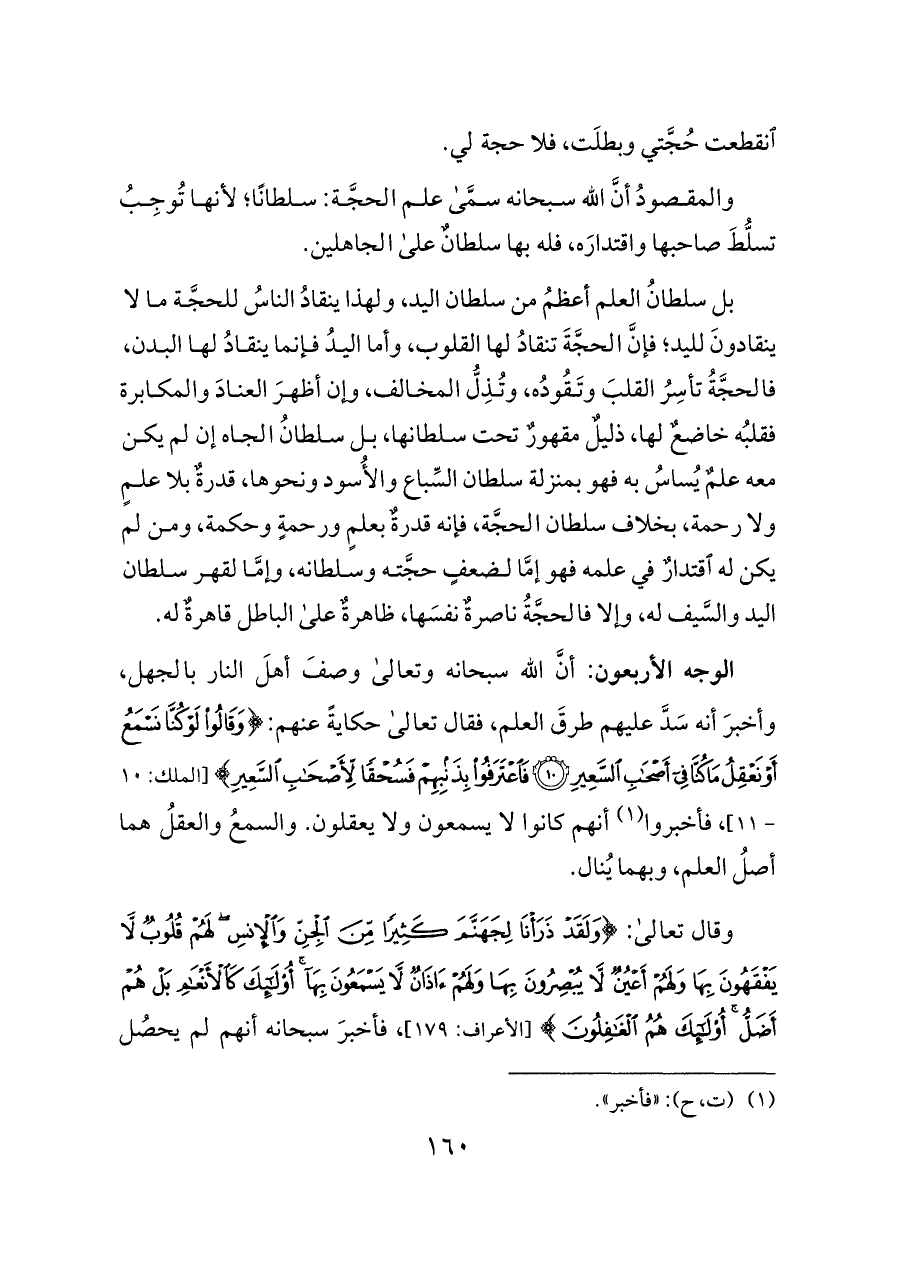 ٱنقطعت حُجَّتي وبطلَت، فلا حجة لي.
والمقصودُ أنَّ الله سبحانه سمَّىٰ علم الحجَّة: سلطانًا؛ لأنها تُوجِبُ
تسلُّطَ صاحبها واقتدارَه، فله بها سلطانٌ علىٰ الجاهلين.
بل سلطانُ العلم أعظمُ من سلطان اليد، ولهذا ينقادُ الناسُ للحجَّة ما لا
ينقادونَ لليد؛ فإنَّ الحجَّةَ تنقادُ لها القلوب، وأما اليدُ فإنما ينقادُ لها البدن،
فالحجَّةُ تأسِرُ القلبَ وتَقُودُه، وتُذِلُّ المخالف، وإن أظهرَ العنادَ والمكابرة
فقلبُه خاضعٌ لها، ذليلٌ مقهورٌ تحت سلطانها، بل سلطانُ الجاه إن لم يكن
معه علمٌ يُساسُ به فهو بمنزلة سلطان السِّباع والأُسود ونحوها، قدرةٌ بلا علمٍ
ولا رحمة، بخلاف سلطان الحجَّة، فإنه قدرةٌ بعلمٍ ورحمةٍ وحكمة، ومن لم
يكن له ٱقتدارٌ في علمه فهو إمَّا لضعفِ حجَّته وسلطانه، وإمَّا لقهر سلطان
اليد والسَّيف له، وإلا فالحجَّةُ ناصرةٌ نفسَها، ظاهرةٌ علىٰ الباطل قاهرةٌ له.
الوجه الأربعون: أنَّ الله سبحانه وتعالىٰ وصفَ أهلَ النار بالجهل،
وأخبرَ أنه سَدَّ عليهم طرقَ العلم، فقال تعالىٰ حكايةً عنهم: ﴿وَقَالُوا۟ لَوْ كُنَّا نَسْمَعُ
أَوْ نَعْقِلُ مَا كُنَّا فِىٓ أَصْحَٰبِ ٱلسَّعِيرِ ۝١٠ فَٱعْتَرَفُوا۟ بِذَنۢبِهِمْ فَسُحْقًا لِّأَصْحَٰبِ ٱلسَّعِيرِ﴾ [الملك: ١٠
- ١١]، فأخبروا(١) أنهم كانوا لا يسمعون ولا يعقلون. والسمعُ والعقلُ هما
أصلُ العلم، وبهما يُنال.
وقال تعالىٰ: ﴿وَلَقَدْ ذَرَأْنَا لِجَهَنَّمَ كَثِيرًا مِّنَ ٱلْجِنِّ وَٱلْإِنسِ ۖ لَهُمْ قُلُوبٌ لَّا
يَفْقَهُونَ بِهَا وَلَهُمْ أَعْيُنٌ لَّا يُبْصِرُونَ بِهَا وَلَهُمْ ءَاذَانٌ لَّا يَسْمَعُونَ بِهَآ ۚ أُو۟لَٰٓئِكَ كَٱلْأَنْعَٰمِ بَلْ هُمْ
أَضَلُّ ۚ أُو۟لَٰٓئِكَ هُمُ ٱلْغَٰفِلُونَ﴾ [الأعراف: ١٧٩]، فأخبرَ سبحانه أنهم لم يحصُل
(١) (ت، ح): «فأخبر».
١٦٠